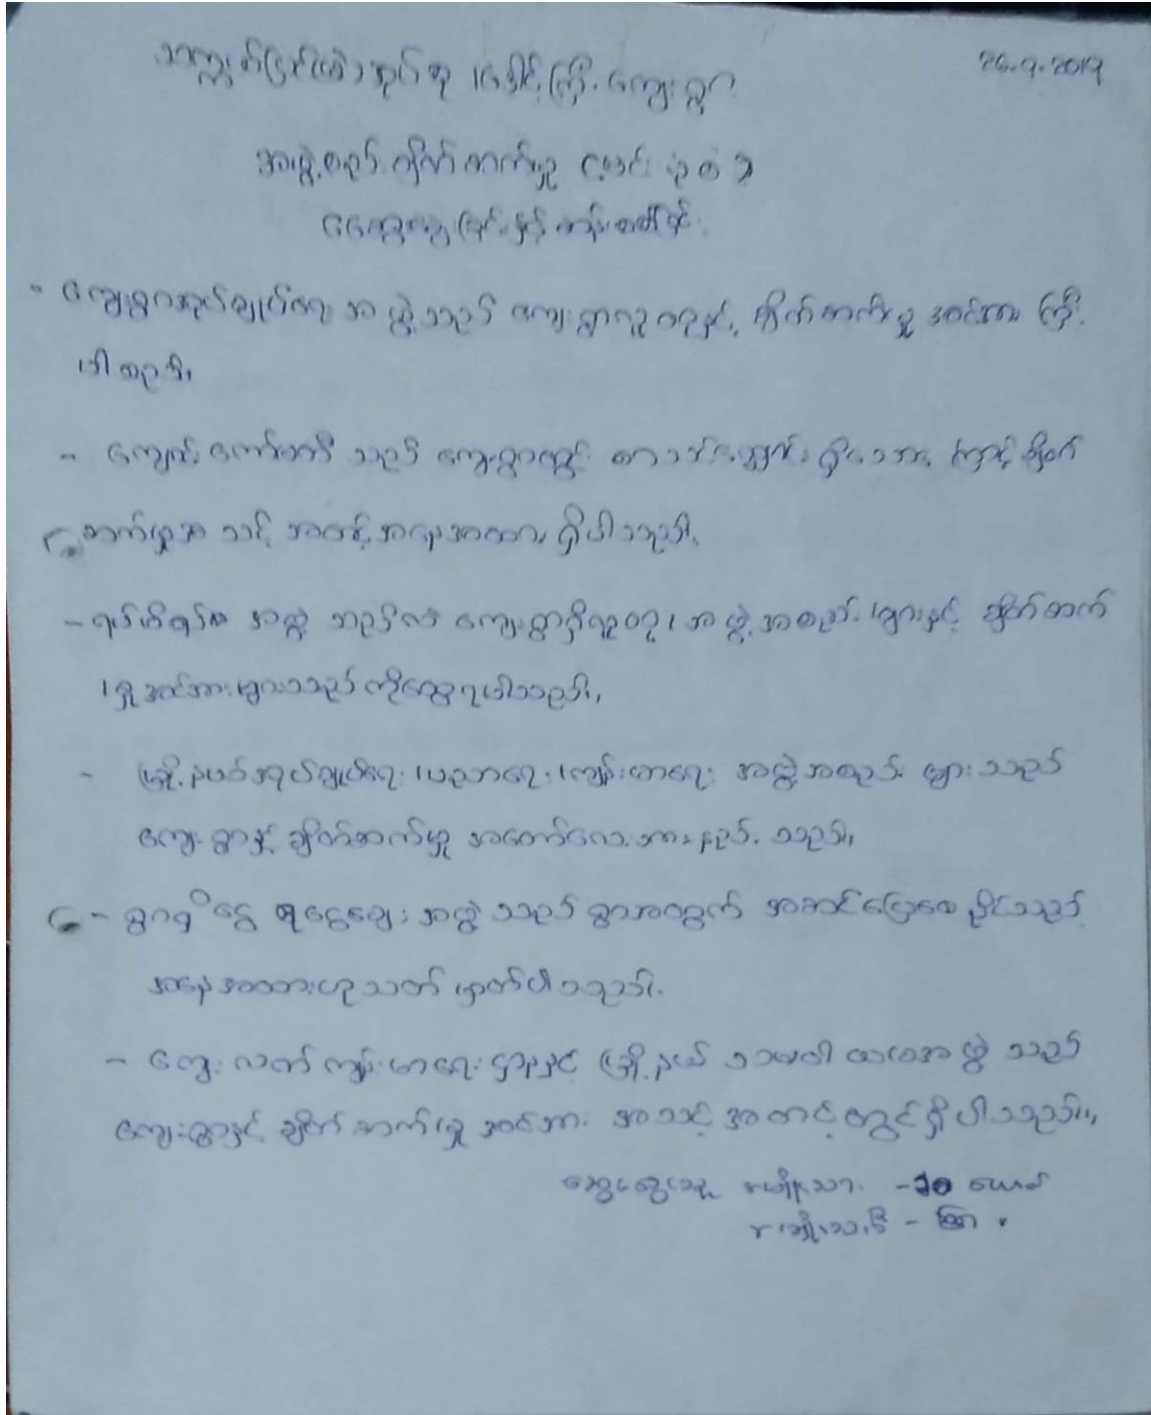 26.9.2019
ကြီး ကျေးရွာ
အဖွဲ့အစည်း ချိတ်ဆက်မှု ပုံစံ
ဆွေးနွေးခြင်းနှင့် ဆန်းစစ်ခြင်း
- ကျေးရွာအုပ်ချုပ်ရေး အဖွဲ့သည် ကျေးရွာလူထုနှင့် ချိတ်ဆက်မှု အင်အား ကြီး
ပါသည်။
- ကျောင်းကော်မတီ သည် ကျေးရွာတွင် စာသင်ကျောင်း ရှိသော ကြောင့် ချိတ်
ဆက်မှုအား သင့် အတင့် အနေအထား ရှိပါသည်။
- အဖွဲ့ သည်လဲ ကျေးရွာရှိလူထု၊ အဖွဲ့အစည်း များနှင့် ချိတ်ဆက်
မှုအင်အားများသည်ကိုတွေ့ရပါသည်။
- မြို့နယ်အုပ်ချုပ်ရေး၊ ပညာရေး၊ ကျန်းမာရေး အဖွဲ့အစည်း များသည်
ကျေးရွာနှင့် ချိတ်ဆက်မှု အတော်လေးအားနည်း သည်။
- ရွာရှိ ငွေ စုငွေချေး အဖွဲ့ သည် ရွာအတွက် အဆင်ပြေစေ နိုင်သည့်
အနေအထားဟု သတ် မှတ်ပါသည်။
- ကျေးလက် ကျန်းမာရေး ဌာနနှင့် မြို့နယ် အဖွဲ့ သည်
ကျေးရွာနှင့် ချိတ်ဆက်မှု အင်အား အသင့် အတင့်တွင်ရှိပါသည်။
ဆွေးနွေးသူ အမျိုးသား - ယောက်
အမျိုးသမီး -